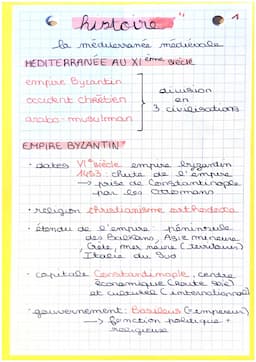 histoire
1
la méditerranée médiévale
MÉDITERRANÉE AU XIème siècle
empire Byzantin
occident Chrétien
arabo-musulman
division
en
3 civilisations
EMPIRE BYZANTIN
• dates VIe siècle empire byzantin
1453 : chute de l'empire
→ prise de Constantinople
par les Ottomans
• religion christianisme orthodoxe
• étendu de l'empire : péninsule
des Balkans, Asie mineure,
Crète, mer noire (territoires)
Italie du Sud
• capitale Constantinople, centre
économique (route soie)
et culturel (international)
• gouvernement : Basileus (= empereur)
→ fonction politique +
religieuse